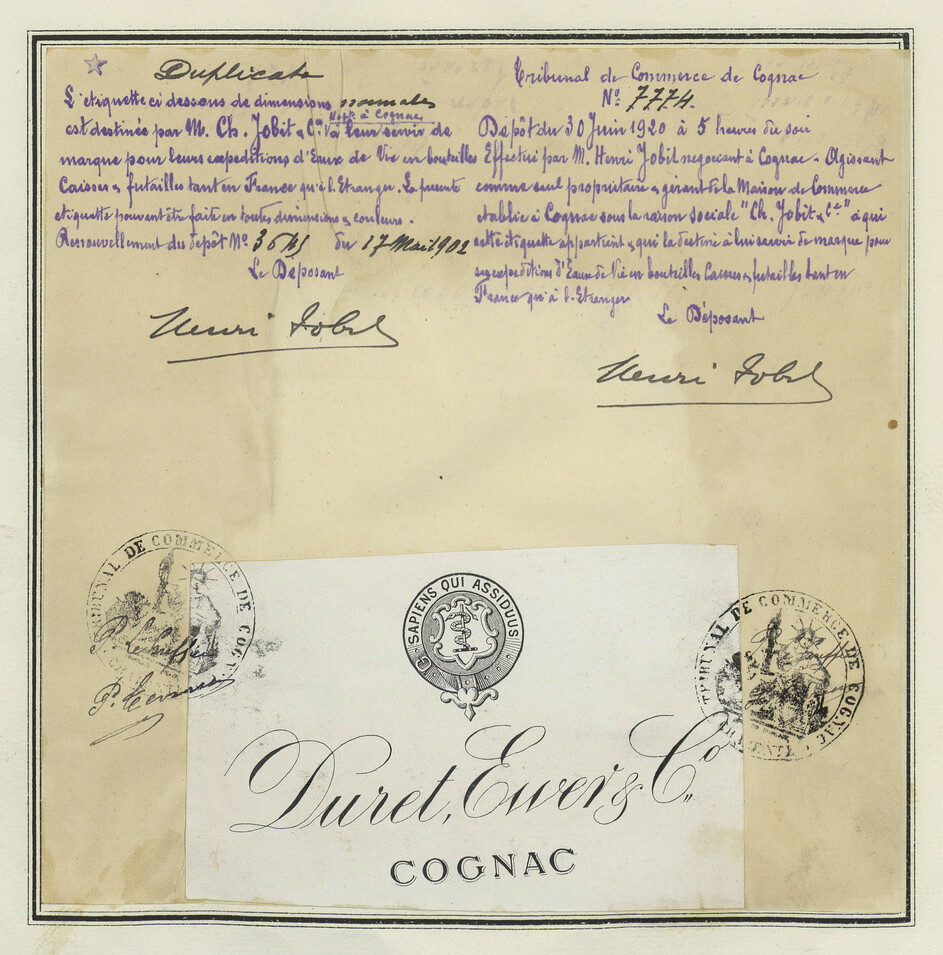 Duplicata
L'etiquette ci dessous de dimensions normales
est destinée par M. Ch. Jobit & Cie Nvts à Cognac à leur servir de
marque pour leurs expeditions d'Eaux de Vie en bouteilles
Caisses & futailles tant en France qu'à l'Etranger. La presente
etiquette pouvant être faite en toutes dimensions & couleurs.
Renouvellement des depôt No. du 17 Mai 1902
Le Déposant
Henri Jobit
Tribunal de Commerce de Cognac
No. 7774.
Depôt du 30 Juin 1920 à 5 heures du soir
Effectué par M. Henri Jobit negociant à Cognac - Agissant
comme seul propriétaire & gérant de la Maison de Commerce
etablie à Cognac sous la raison sociale "Ch. Jobit & Cie" à qui
cette étiquette appartient & qui la destine à lui servir de marque pour
ses expeditions d'Eaux de Vie en bouteilles Caisses & futailles tant en
France qu'à l'Etranger
Le Déposant
Henri Jobit
TRIBUNAL DE COMMERCE DE COGNAC
SAPIENS QUI ASSIDUUS
Duret, Ewer & Co.
COGNAC
TRIBUNAL DE COMMERCE DE COGNAC
CHARENTE